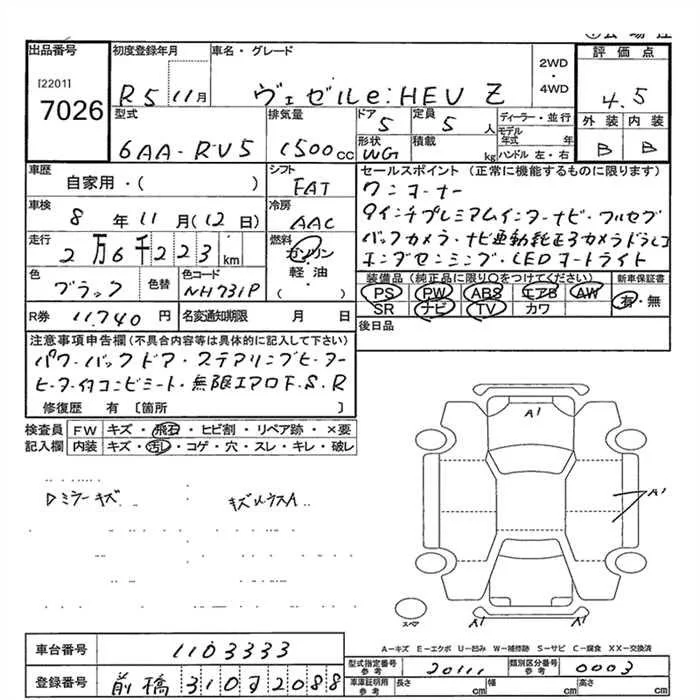 出品番号 初度登録年月 車名・グレード 2WD・4WD 評価点
[2201] 7026 R5 11月 ヴェゼルe:HEV Z 4.5
型式 排気量 ドア 定員 ディーラー・並行 外装 内装
6AA-RV5 1500cc 5 5人 モデル年式 年 B B
形状 積載 ハンドル 左・右
WG kg
車歴 シフト セールスポイント (正常に機能するものに限ります)
自家用・( ) FAT ワンオーナー
車検 冷房 9インチプレミアムインターナビ・フルセグ
8年11月(12日) AAC バックカメラ・ナビ連動純正カメラドラレコ
走行 燃料 ホンダセンシング・LEDオートライト
2万6千223km ガソリン
軽油
・( )
色 色替 色コード 装備品 (純正品に限り○をつけてください) 新車保証書
ブラック NH731P PS PW ABS エアB AW 有・無
SR ナビ TV カワ
R券 11,740円 名変通知期限 月 日 後日品
注意事項申告欄(不具合内容等は具体的に記入して下さい)
パワーバックドア・ステアリングヒーター
ヒーター付コンビシート・無限エアロF.S.R
修復歴 有 〔箇所 〕
検査員 FW キズ・飛石・ヒビ割・リペア跡・×要
記入欄 内装 キズ・汚し・コゲ・穴・スレ・キレ・破レ
A1
Dミラーキズ キズ
A1
スペア A1 A1
A-キズ E-エクボ U-凹み W-補修跡 S-サビ C-腐食 XX-交換済
車台番号 1103333 型式指定番号 参考 20111 類別区分番号 参考 0003
登録番号 前橋 310 す 2088 車庫証明用 参考 長さ cm 幅 cm 高さ cm